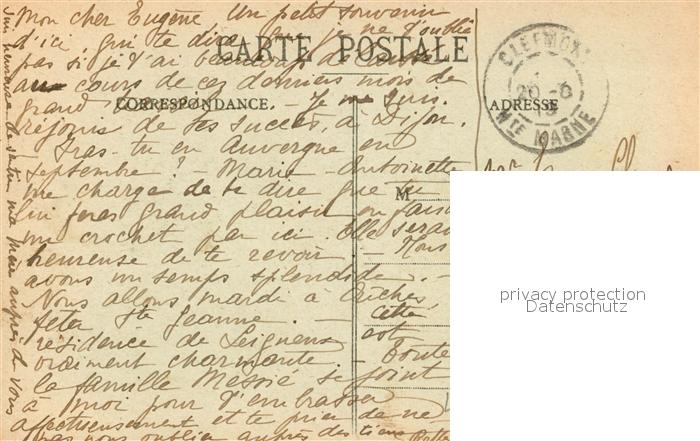 Mon cher Eugène, Un petit souvenir
d'ici, qui te dira que je ne t'oublie
pas si je t'ai beaucoup
au cours de ces derniers mois de
grand - Je me suis
réjouie de tes succès, à Dijon.
- Iras-tu en Auvergne en
septembre? - Marie-Antoinette
me charge de te dire que tu
lui feras grand plaisir en faisant
un crochet par ici. Elle serait
heureuse de te revoir. - Nous
avons un temps splendide. -
Nous allons mardi à
fêter Ste Jeanne. - cette
résidence de est
vraiment charmante. - Toute
la famille Messié se joint
à moi pour t'embrasser
affectueusement et te prier de ne
pas nous oublier auprès des tiens
CARTE POSTALE
CORRESPONDANCE.
ADRESSE
M
CLEFMONT
20-8
HTE MARNE
privacy protection
Datenschutz